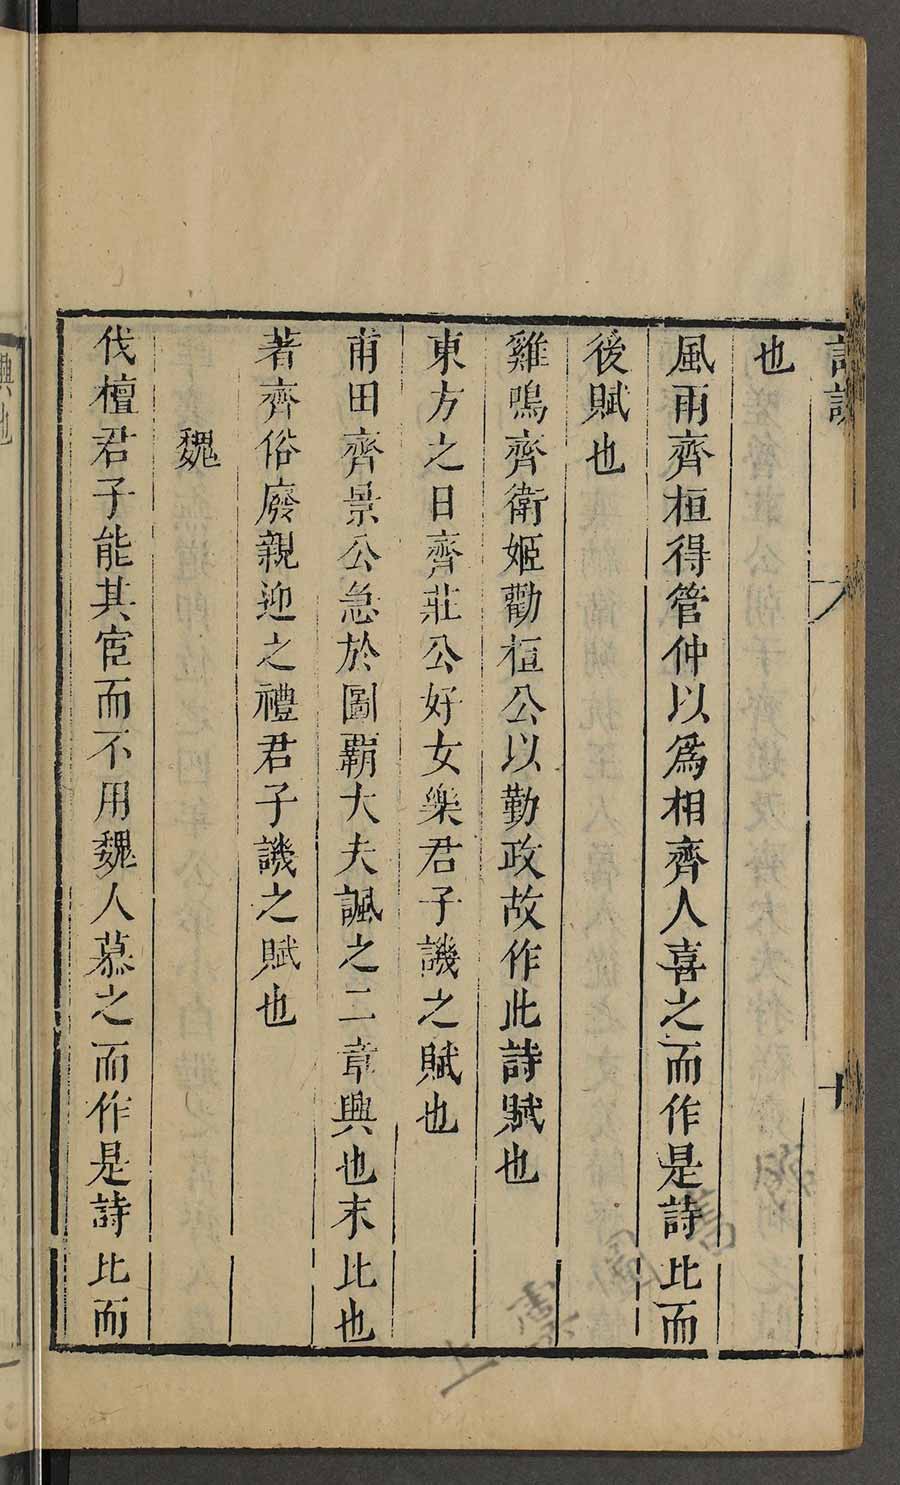 也
風雨齊桓得管仲以爲相齊人喜之而作是詩比而
後賦也
雞鳴齊衛姬勸桓公以勤政故作此詩賦也
東方之日齊莊公好女樂君子譏之賦也
甫田齊景公急於圖霸大夫諷之二章興也末比也
著齊俗廢親迎之禮君子譏之賦也
魏
伐檀君子能其宦而不用魏人慕之而作是詩比而